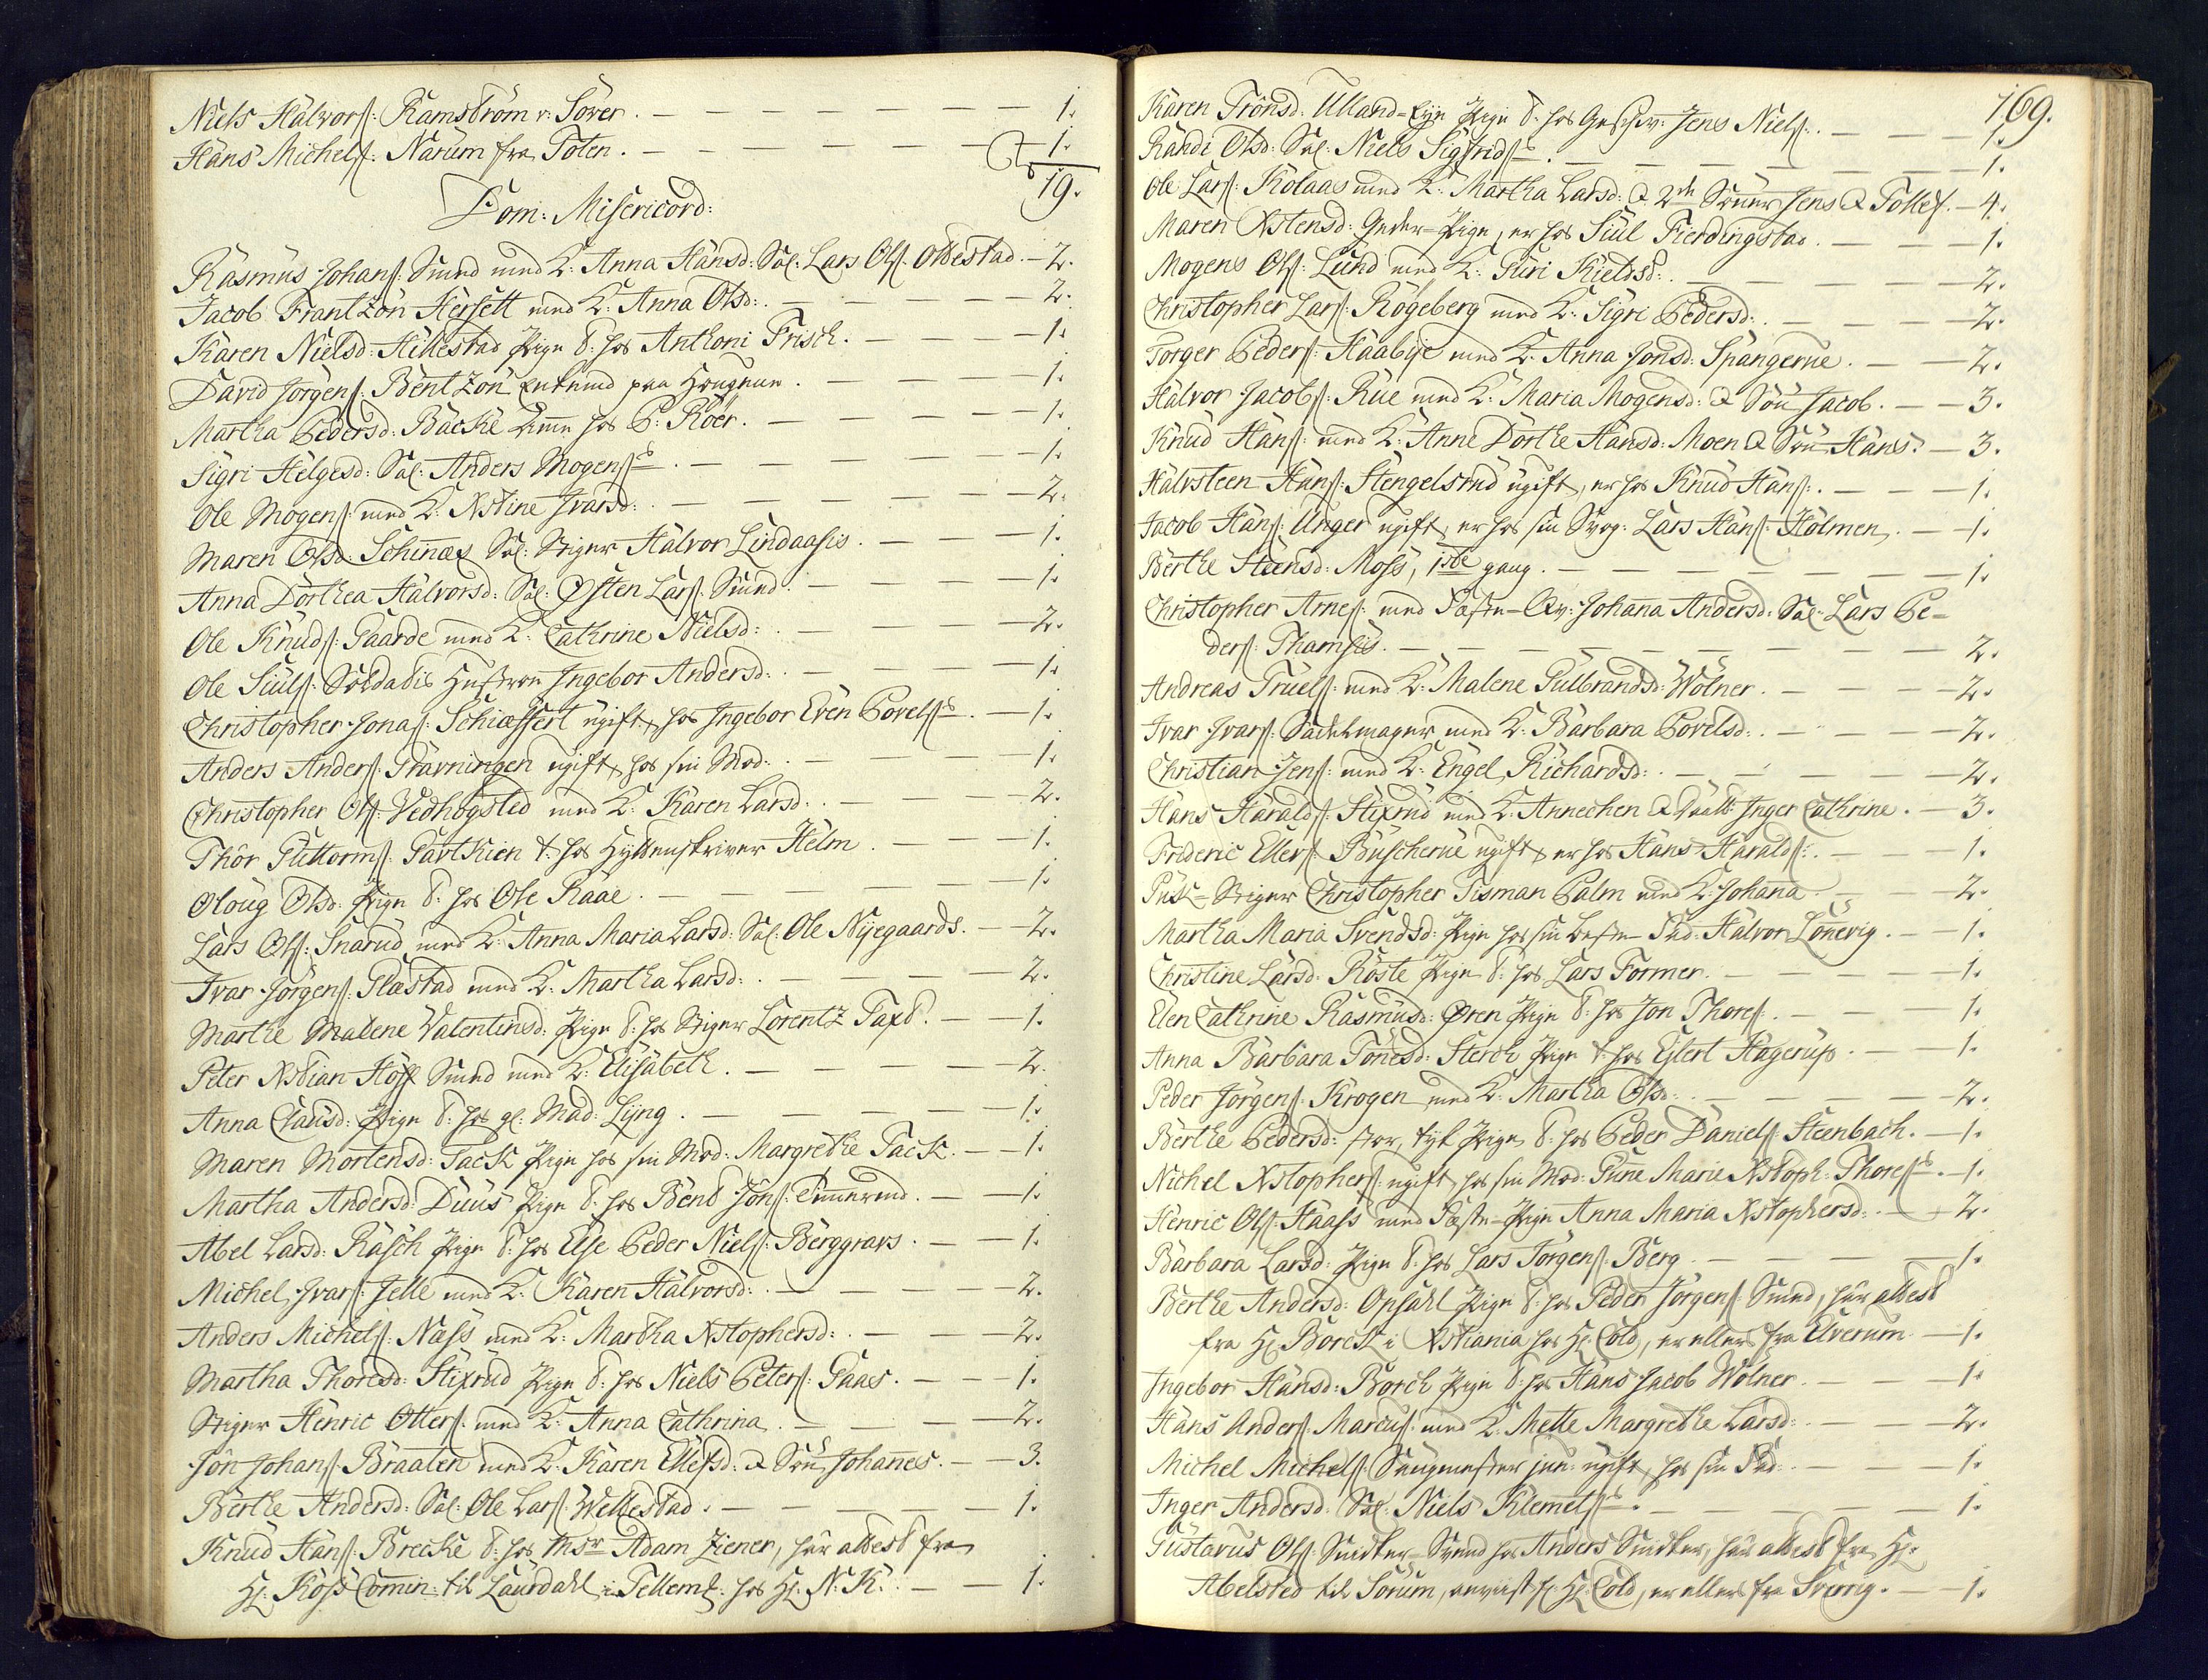 Niels Halvors: Ramstrøm v: Søver. — 1.
Hans Michels: Narum fra Toten. — 1.
19.
Dom: Misericord:
Rasmus Johans: Smed med K: Anna Hansd: Sal: Lars Ols: Ollestad. — 2.
Jacob Frantzøn Hersett med K: Anna Olsd: — 2.
Karen Nielsd: Hillestad Pige t: hos Anthoni Frisch. — 1.
David Jörgens: Bentzön Enkemd paa Hougene. — 1.
Martha Pedersd: Backe hos P: Röer. — 1.
Sigri Helgesd: Sal: Anders Mogens: — 1.
Ole Mogens: med K: Xstine Ivarsd: — 2.
Maren Olsd: Schinnæs Sal: Stiger Halvor Lindaasis. — 1.
Anna Dorthea Halvorsd: Sal: Østen Lars: Smed. — 1.
Ole Knuds: Gaarde med K: Cathrine Nielsd: — 2.
Ole Siuls: Soldatis Hustroe Ingebor Andersd: — 1.
Christopher Jonas: Schiæffert ugift, hos Ingebor Even Povels: — 1.
Anders Anders: Gravningen ugift, hos sin Mod: — 1.
Christopher Ols: Vedhogsted med K: Karen Larsd: — 2.
Thor Guttorms: Gartkien t: hos Hyttenskriver Helm. — 1.
Oloug Olsd: Pige t: hos Ole Raae. — 1.
Lars Ols: Snarud med K: Anna Maria Larsd: Sal: Ole Nyegaards. — 2.
Ivar Jörgens: Glæstad med K: Martha Larsd: — 2.
Marthe Malene Valentinsd: Pige t: hos Stiger Lorentz Taxt. — 1.
Peter Xstian Höff Smed med K: Elisabeth. — 2.
Anna Clausd: Pige t: hos gl: Mad: Lyng. — 1.
Maren Mortensd: Tack Pige hos sin Mod: Margrethe Tack. — 1.
Martha Andersd: Duus Pige t: hos Bent Jöns: Tømmermd. — 1.
Abel Larsd: Rasch Pige t: hos Else Peder Niels: Berggravs. — 1.
Michel Ivars: Jelle med K: Karen Halvorsd: — 2.
Anders Michels: Næss med K: Martha Xstophersd: — 2.
Martha Thoresd: Stixrud Pige t: hos Niels Peters: Gaas. — 1.
Stiger Henric Otters: med K: Anna Cathrina. — 2.
Jon Johans: Braaten med K: Karen Ellefsd: & Søn Johannes. — 3.
Berthe Andersd: Sal: Ole Lars: Wellestad. — 1.
Knud Hans: Brecke t: hos Msr Adam Ziener, har attest fra
Hr: Koss Commin: til Laurdahl i Tellem: hos Hr: N: K: — 1.
169.
Karen Trönsd: Ulland-Eye Pige t: hos Geschw: Jens Niels: — 1.
Randi Olsd: Sal: Niels Sigfrids: — 1.
Ole Lars: Kolaas med K: Martha Larsd: & 2de Sønner Jens & Tollef. — 4.
Maren Xstensd: Pige, er hos Siul Fierdingstad. — 1.
Mogens Ols: Lund med K: Guri Kieldsd: — 2.
Christopher Lars: Rögeberg med K: Sigri Pedersd: — 2.
Torger Peders: Haabye med K: Anna Jonsd: Spangerue. — 2.
Halvor Jacobs: Rue med K: Maria Mogensd: & Søn Jacob. — 3.
Knud Hans: med K: Anne Dorthe Hansd: Moen & Søn Hans. — 3.
Halvsteen Hans: Hengelsrud ugift, er hos Knud Hans: — 1.
Jacob Hans: Unger ugift, er hos sin Svog: Lars Hans: Holmen. — 1.
Berthe Steensd: Moss, 1ste gang. — 1.
Christopher Arnes: med Fæste-Qv: Johanna Andersd: Sal: Lars Pe-
ders: Thamsis. — 2.
Andreas Truels: med K: Malene Gulbrandsd: Wølner. — 2.
Ivar Ivars: Sadelmager med K: Barbara Povelsd: — 2.
Christian Jens: med K: Engel Richardsd: — 2.
Hans Haralds: Stixrud med K: Annechen & Daatt: Inger Cathrine. — 3.
Frideric Ellers: Buscherue ugift, er hos Hans Haralds: — 1.
Puk-Stiger Christopher Tisman Palm med K: Johana. — 2.
Martha Maria Svendsd: Pige hos sin Beste-Fad: Halvor Lönnevig. — 1.
Christine Larsd: Röste Pige t: hos Lars Former. — 1.
Elen Cathrine Rasmusd: Øren Pige t: hos Jon Thores: — 1.
Anna Barbara Tönesd: Sterch Pige t: hos Eylert Hagerup. — 1.
Peder Jörgens: Krogen med K: Martha Olsd: — 2.
Berthe Pedersd: stor, tyk Pige, t: hos Peder Daniels: Steenbach. — 1.
Nichel Xstophers: ugift, hos sin Mod: Gune Marie Xstoph: Thores: — 1.
Henric Ols: Haass med Fæste-Pige Anna Maria Xstophersd: — 2.
Barbara Larsd: Pige t: hos Lars Törgens: Berg. — 1.
Berthe Andersd: Opsahl Pige t: hos Peder Jörgens: Smed, har attest
fra Hr: Borch i Xstiania hos Hr: Cold, er ellers fra Elverum. — 1.
Ingebor Hansd: Borch Pige t: hos Hans Jacob Wölner. — 1.
Hans Anders: Marcus: med K: Mette Margrethe Larsd: — 2.
Michel Michels: Saugmester jun: ugift, hos sin Fad: — 1.
Inger Andersd: Sal: Niels Klemets: — 1.
Gustavus Ols: Snedker-Svend hos Anders Snedker, har attest fra Hr:
Abelsted til Sorum, anviist hos Hr: Cold, er ellers fra Sverrig. — 1.